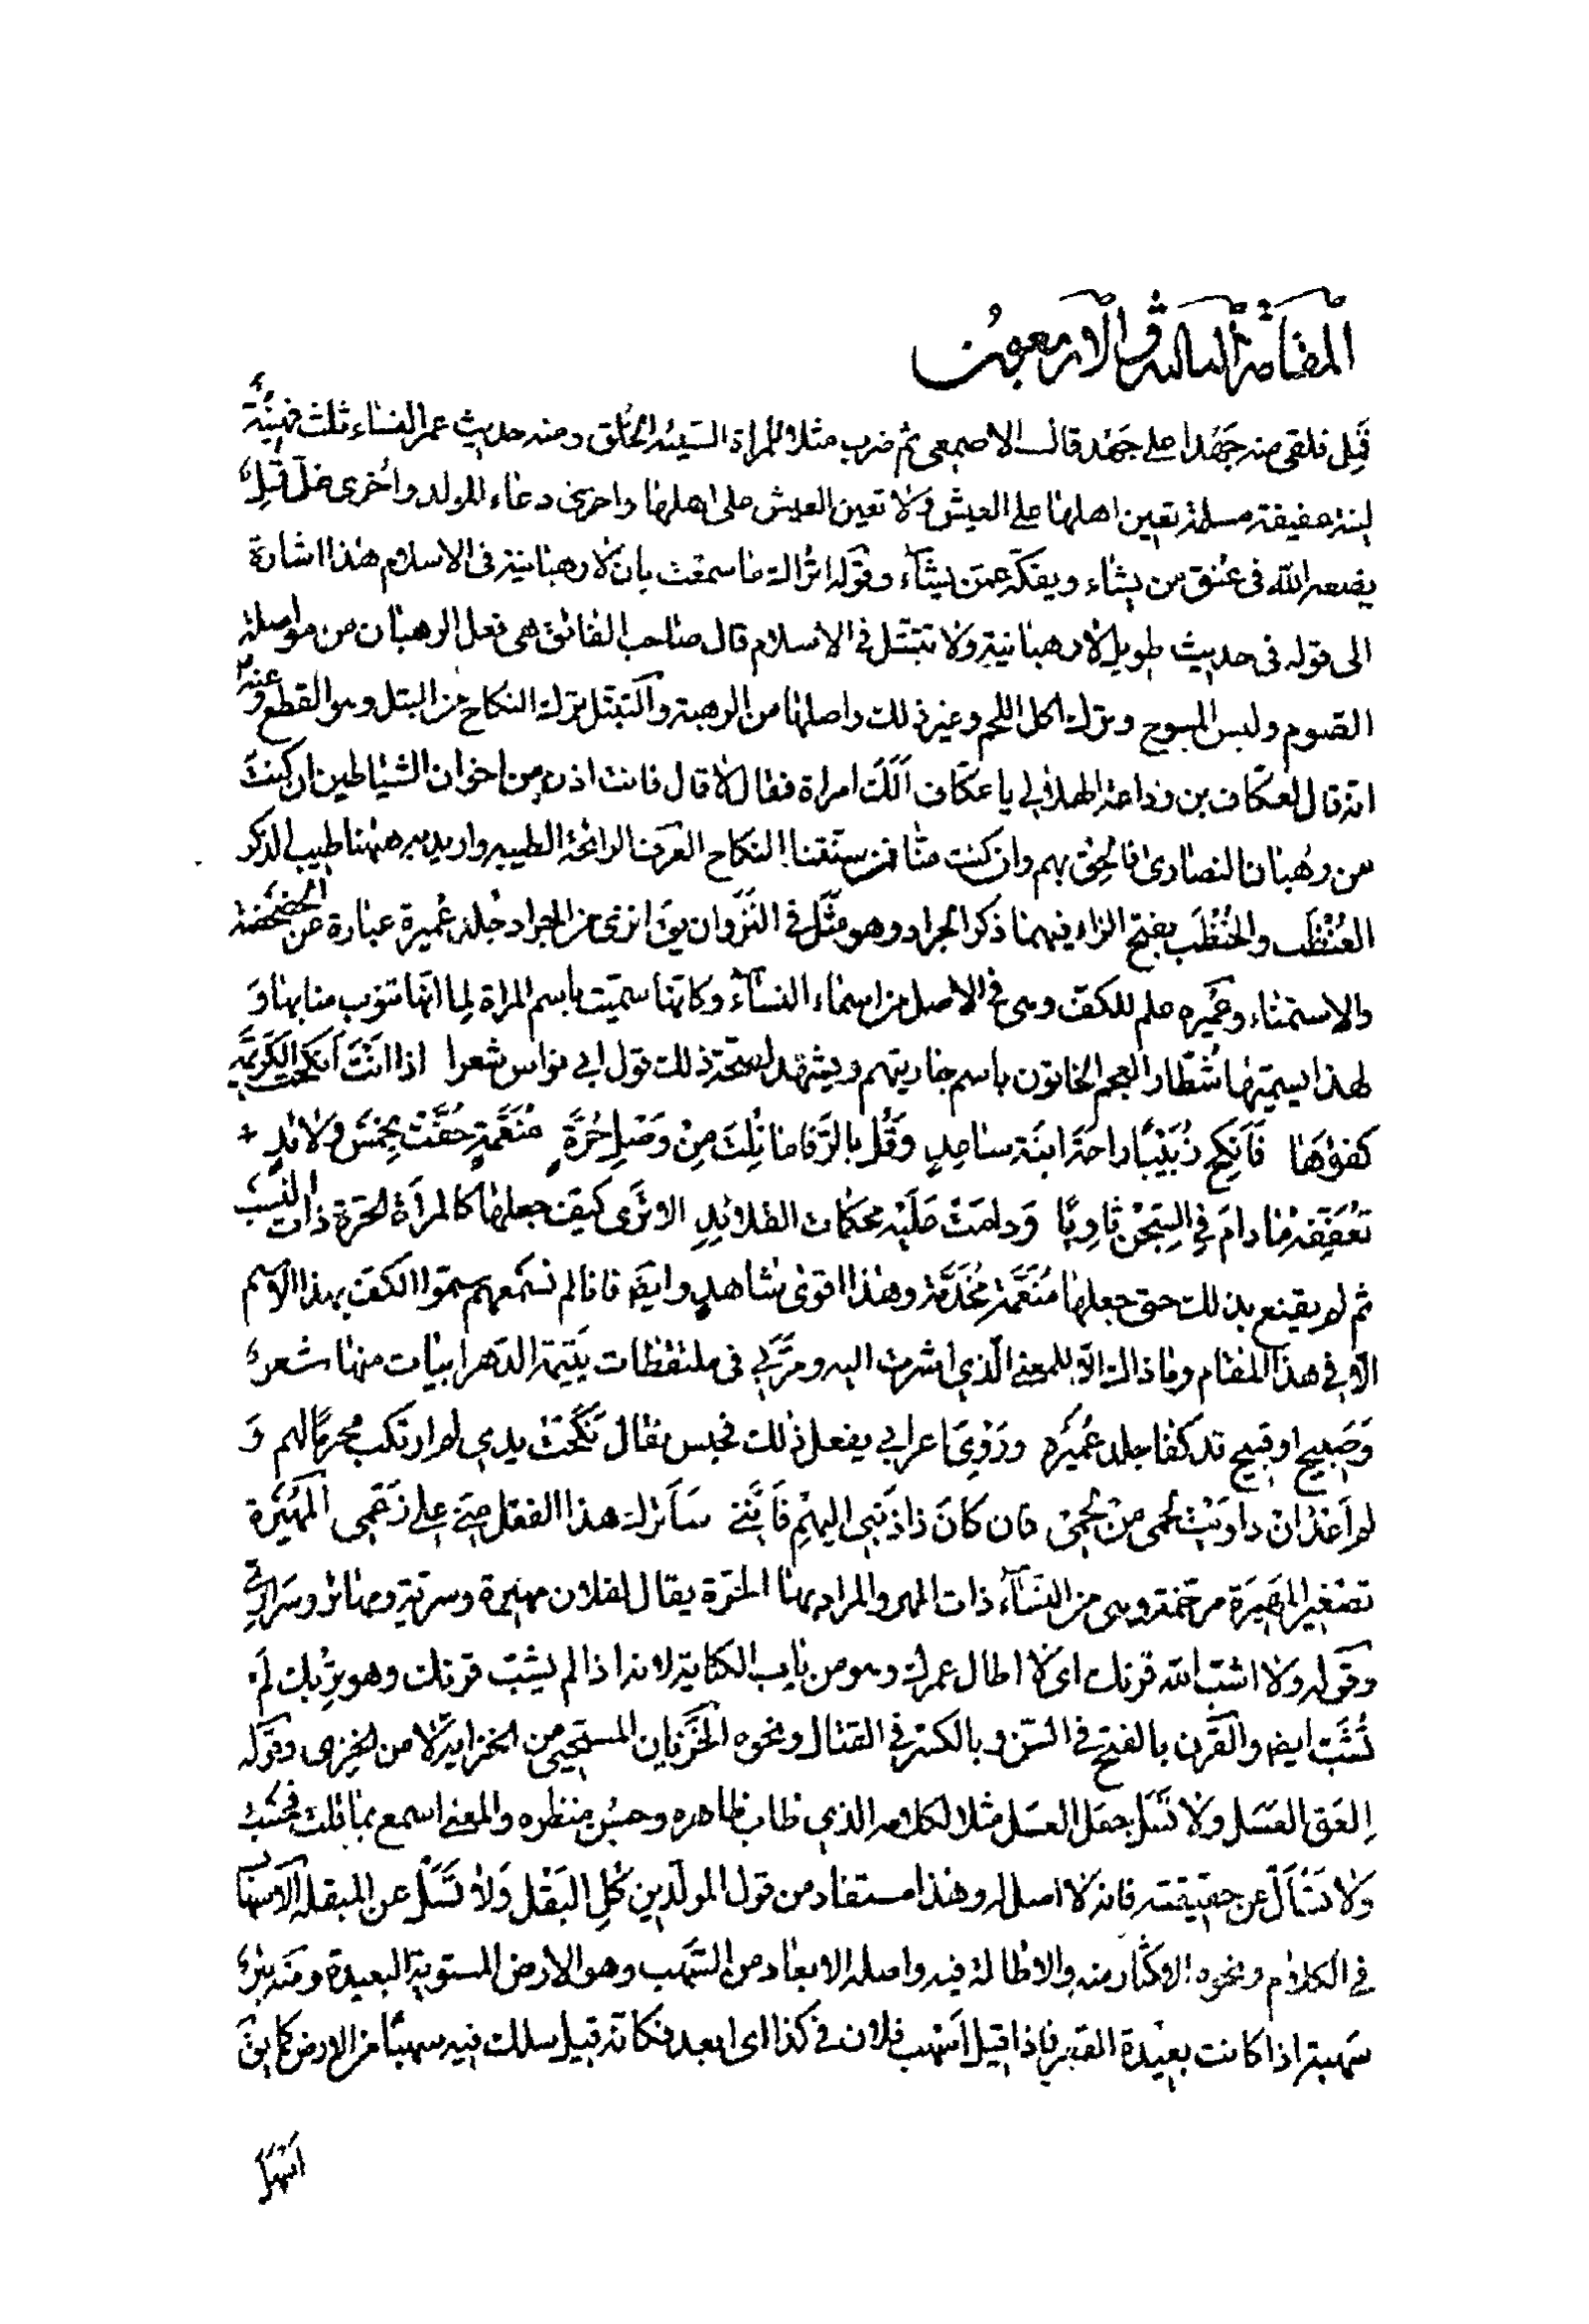 المقامة الثالثة والاربعون
قَمِل فلقى منه جَهْدا على جَهْد قال الاصمعى ثم ضرب مثلا للمراة السيّئة الخُلُق ومنه حديث عمر النساء ثلث فهيّنة
لينة عفيفة مسلمة تعين اهلها على العيش ولا تعين العيش على اهلها واخرى دعاء للولد واُخرى غل قَمِل
يضعه الله فى عنق من يشاء ويفكّه عمّن يشآء وقوله اتُراك ما سمعت بان لا رهبانية فى الاسلام هذا اشارة
الى قوله فى حديث طويل لا رهبانية ولا تبتّل فى الاسلام قال صاحب الفائق هى فعل الرهبان من مواصلة
الصوم ولبس المسوح وترك اكل اللحم وغير ذلك واصلها من الرهبة والتبتّل ترك النكاح من البتل وهو القطع وعنه
انه قال لعكّاف بن وداعة الهلالى يا عكّاف اَلَكَ امراة فقال لا قال فانت اذن من اخوان الشياطين ان كنت
من رهبان النصارى فالحق بهم وان كنت منّا فمن سنّتنا النكاح العَرف الرائحة الطيبة واريد به ههنا طيب الذكر
العُنْظَب والحُنْظَب بفتح الظاء فيهما ذكر الجراد وهو مثَل فى النَزَوان يق انزى من الجراد جلد عُميرة عبارة عن الخضخضة
والاستمناء وعُمَيره علم للكفّ وهى فى الاصل من اسماء النسآء وكانّها سمّيت باسم المراة لما انّها تنوب منابها و
لهذا يسمّيها شُطّار العجم الخاتون باسم جاريتهم ويشهد لصحّة ذلك قول ابى نواس شعرا اذا انتَ اَنكحتَ الكَرِيمة
كفؤَها فَاَنكِح زُبَيْبًا راحةَ ابنَة ساعدٍ وقُل بالرّفا ما نِلتَ مِنْ وَصْلِ حُرَّةٍ مُنَعَّمةٍ حُفَّت بخمسِ ولائدِ
تعفّفه ما دامَ فى السِجْن ثاويًا وَدامتْ عَلَيْه محكمات القلائدِ الا ترَى كيفَ جعلها كالمرأة الحرّة ذات النسب
ثم لم يقنع بذلك حتى جعلها مُنَعَّمة مُخَدَّمة وهذا اقوى شاهد وايضا فانا لم نسمعهم سمّوا الكفّ بهذا الاسم
الّا فى هذا المقام وما ذاك الّا للمعنى الّذى اشرت اليه ومرّ بى فى ملتقطات يتيمة الدهر ابيات منها شعر
وَصَبيح او قبيح قد كفا جلد عُميَره ورُوِىَ اعرابى يفعل ذلك فحبس فقال نَكَحْتُ يدى لم ارتكب محرما لهم و
لم اَعْدُ ان داويت لحمى من لحمى فان كانَ ذا ذَنبى اليهِمِ فَاِنّنى سَاَترك هذا الفعل حتى على زَعْمِى المُهَيْرَة
تصغير المَهِيرَة مرخّمة وهى من النسآء ذات المهر والمراد بها الحُرّة يقال لفلان مهيرة وسريّة ومهائر وسَرارِىّ
وقوله ولا اشبّ الله قرنك اى لا اطال عمرك وهو من باب الكناية لانه اذا لم يشبّ قرنك وهو تِرْبك لم
تُشَبّ ايضا والقَرن بالفتح فى السّن وبالكسر فى القتال ونحوه الخَزيان المستحيى من الخزاية لا من الخِزى وقوله
اِلعَق العَسَل ولا تَسَل جعل العسَل مثلا لكلامه الذى طاب ظاهره وحسُن منظره والمعنى اسمع بما قلت فحسب
ولا تسأل عن حقيقته فانه لا اصل له وهذا مستفاد من قول المولّدين كُلِ البَقْل وَلا تَسَل عن المبقلة الاسهاب
فى الكلام ونحوه الاكثار منه والاطالة فيه واصله الابعاد من السَهب وهو الارض المستوية البعيدة ومنه بئر
سَهبة اذا كانت بعيدة القعر فاذا قيل اَسْهب فلان فى كذا اى ابعد فكانّه قيل سلك فيه سهبًا من الارض كما يق
اسهل